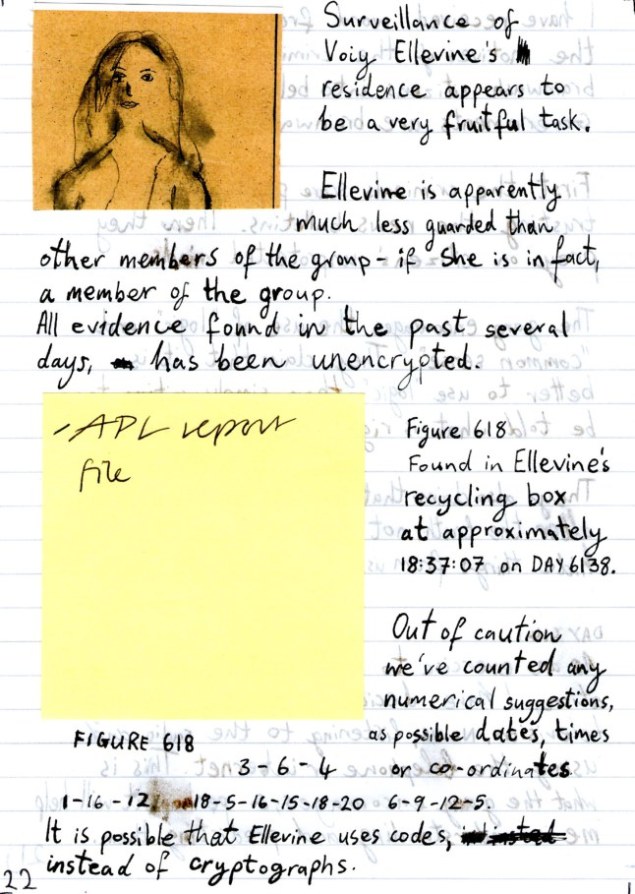 Surveillance of
Voiy Ellevine's
residence appears to
be a very fruitful task.
Ellevine is apparently
much less guarded than
other members of the group - if She is in fact,
a member of the group.
All evidence found in the past several
days, has been unencrypted.
- APL report
file
Figure 618
Found in Ellevine's
recycling box
at approximately
18:37:07 on DAY 6138.
Out of caution
we've counted any
numerical suggestions,
as possible dates, times
or co-ordinates
FIGURE 618
3-6-4
1-16-12 18-5-16-15-18-20 6-9-12-5.
It is possible that Ellevine uses codes,
instead of cryptographs.
22